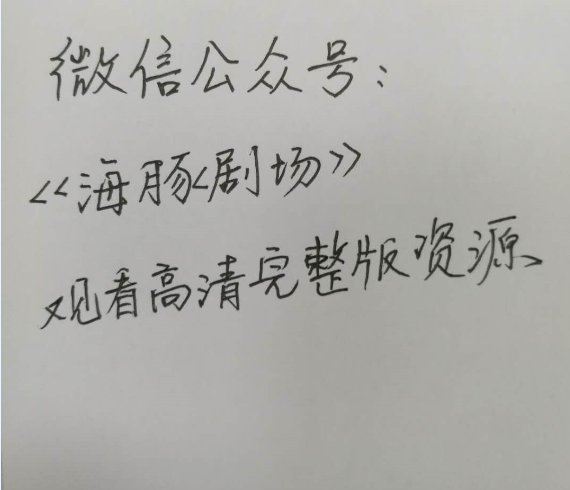 微信公众号:
《海豚剧场》
观看高清完整版资源、